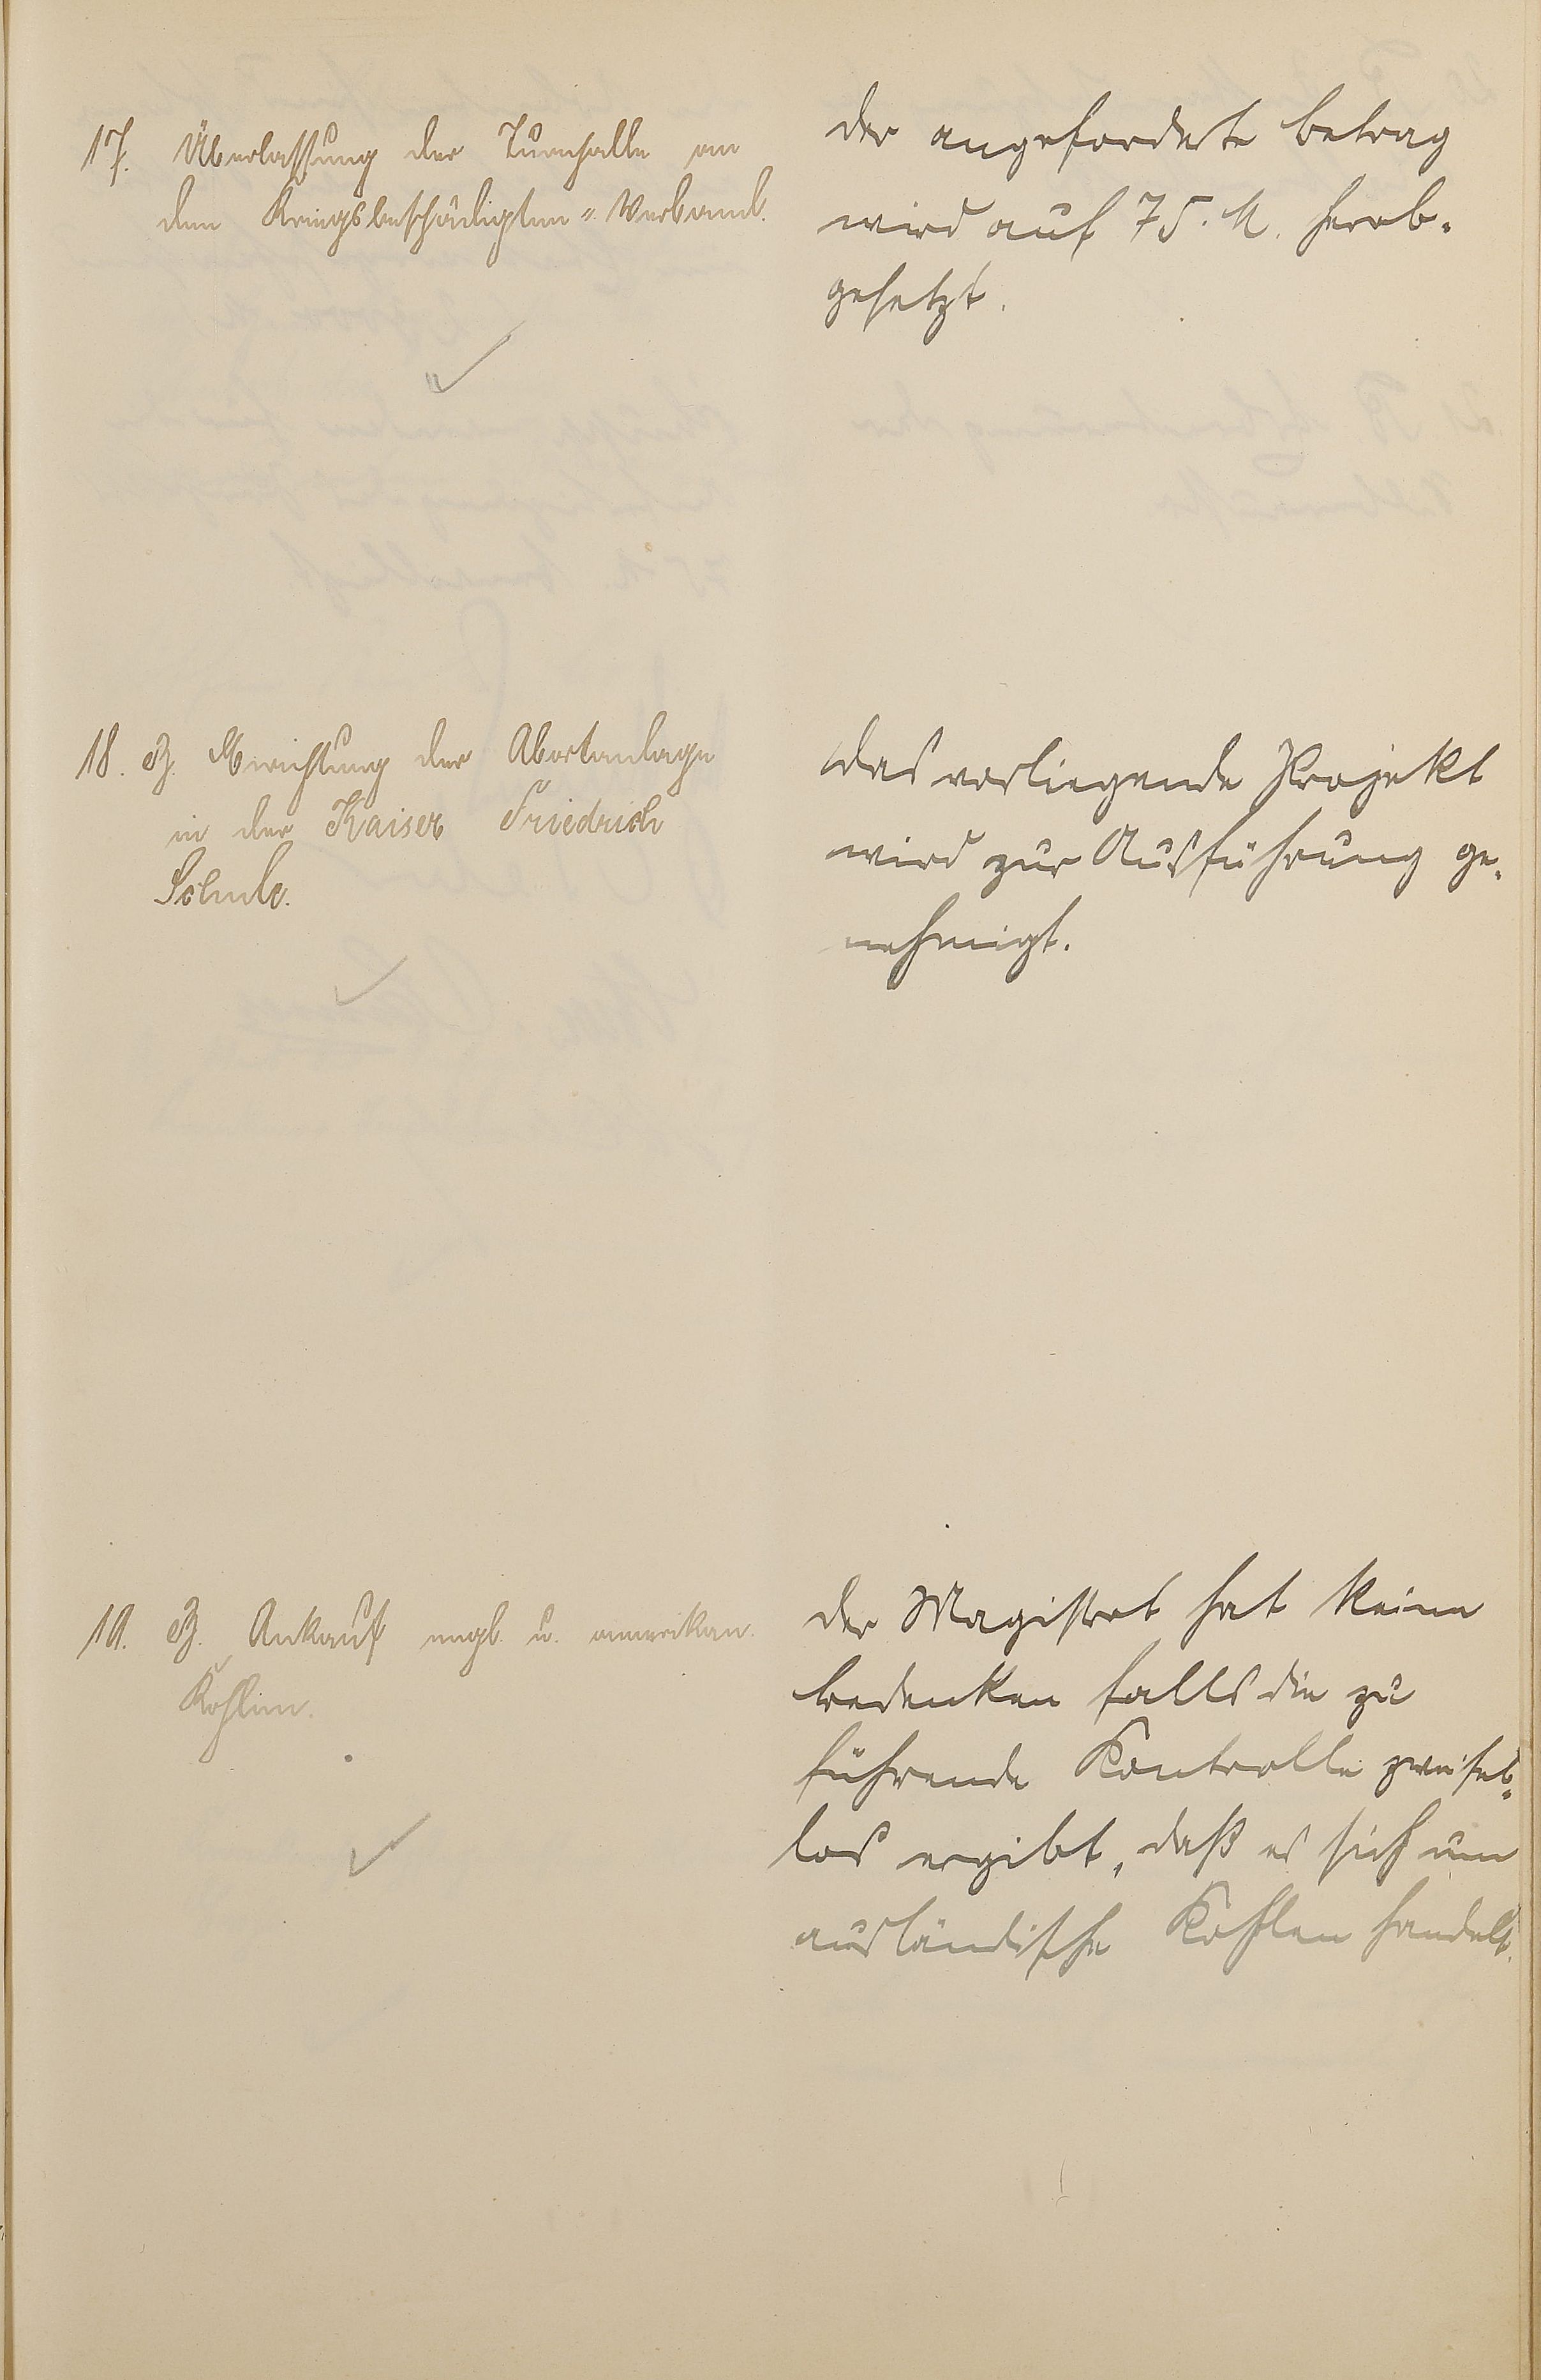 17. Überlassung der Turnhalle an
den Kriegsbeschädigten-Verband.
der angeforderte betrag
wird auf 75. M. herab-
gesetzt.
18. B. Herrichtung der Abortanlage
in der Kaiser Friedrich
Schule.
das vorliegende Projekt
wird zur Ausführung ge-
nehmigt.
19. B. Ankauf engl. u. amerikan.
Kohlen.
der Magistrat hat keine
bedenken falls die zu
führende Kontrolle zweifel-
los ergibt, daß es sich um
ausländische Kohlen handelt.